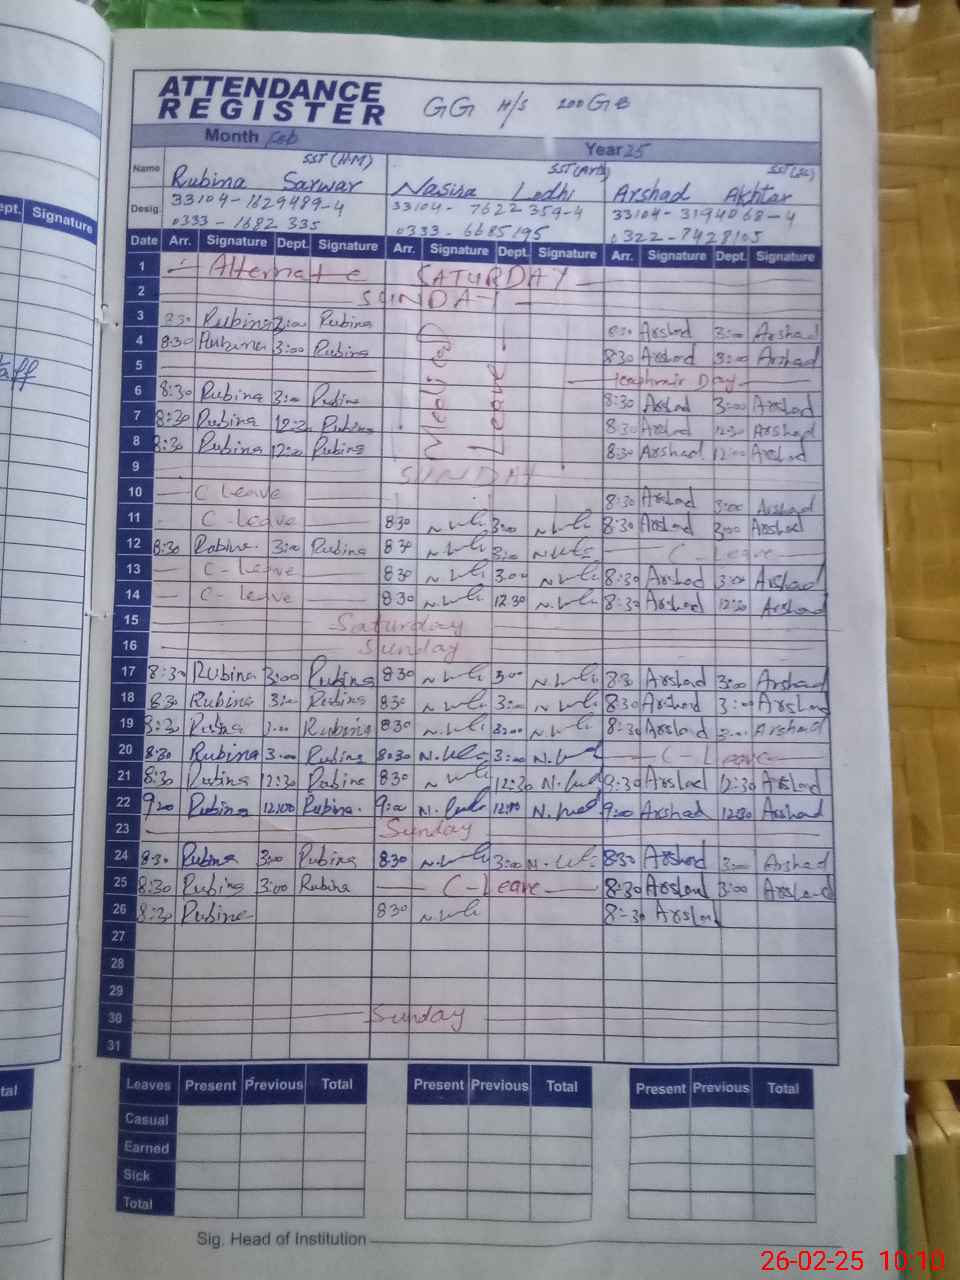 ATTENDANCE
REGISTER GG H/S 200 GB
Month Feb Year 25
SST (H.M) SST (Arts)
Name Rubina Sarwar Nasira Lodhi Arshad Akhtar
Desig. 33104-1629489-4 33104-7622359-4 33104-3194068-4
0333-1682335 0333-6685195 0322-7428105
Date Arr. Signature Dept. Signature Arr. Signature Dept. Signature Arr. Signature Dept. Signature
1 Alternate SATURDAY
2 SUNDAY
3 8:30 Rubina 3:00 Rubina 8:30 Arshad 3:00 Arshad
4 8:30 Rubina 3:00 Rubina 8:30 Arshad 3:00 Arshad
5 Day
6 8:30 Rubina 3:00 Rubina 8:30 Arshad 3:00 Arshad
7 8:30 Rubina Rubina 8:30 Arshad 12:30 Arshad
8 8:30 Rubina 12:00 Rubina 8:30 Arshad 12:00 Arshad
Medical Leave
9 SUNDAY
10 C Leave 8:30 Arshad 3:00 Arshad
11 C-Leave 830 3:00 8:30 Arshad 3:00 Arshad
12 8:30 Rabina 3:00 Rubina 830 3:00 C-Leave
13 C-Leave 830 3.00 8:30 Arshad 3:00 Arshad
14 C-Leave 830 12.30 8:30 Arshad 12:30 Arshad
15 Saturday
16 Sunday
17 8:30 Rubina 3:00 Rubina 830 3:00 8:30 Arshad 3:00 Arshad
18 8:30 Rubina 3:00 Rubina 830 3:00 8:30 Arshad 3:00 Arshad
19 8:30 Rubina 3:00 Rubina 830 3:00 8:30 Arshad 3:00 Arshad
20 8:30 Rubina 3:00 Rubina 8:30 3:00 C-Leave
21 8:30 Rubina 12:30 Rubina 830 12:30 8:30 Arshad 12:30 Arshad
22 9:00 Rubina Rubina 9:00 9:00 Arshad 12:30 Arshad
23 Sunday
24 8:30 Rubina 3:00 Rubina 8:30 3:00 830 Arshad 3:00 Arshad
25 8:30 Rubina 3:00 Rubina C-Leave 8:30 Arshad 3:00 Arshad
26 8:30 Rubina 830 8:30 Arshad
27
28
29
30 Sunday
31
Leaves Present Previous Total Present Previous Total Present Previous Total
Casual
Earned
Sick
Total
Sig. Head of Institution
ept. Signature
aff
tal
26-02-25 10:10